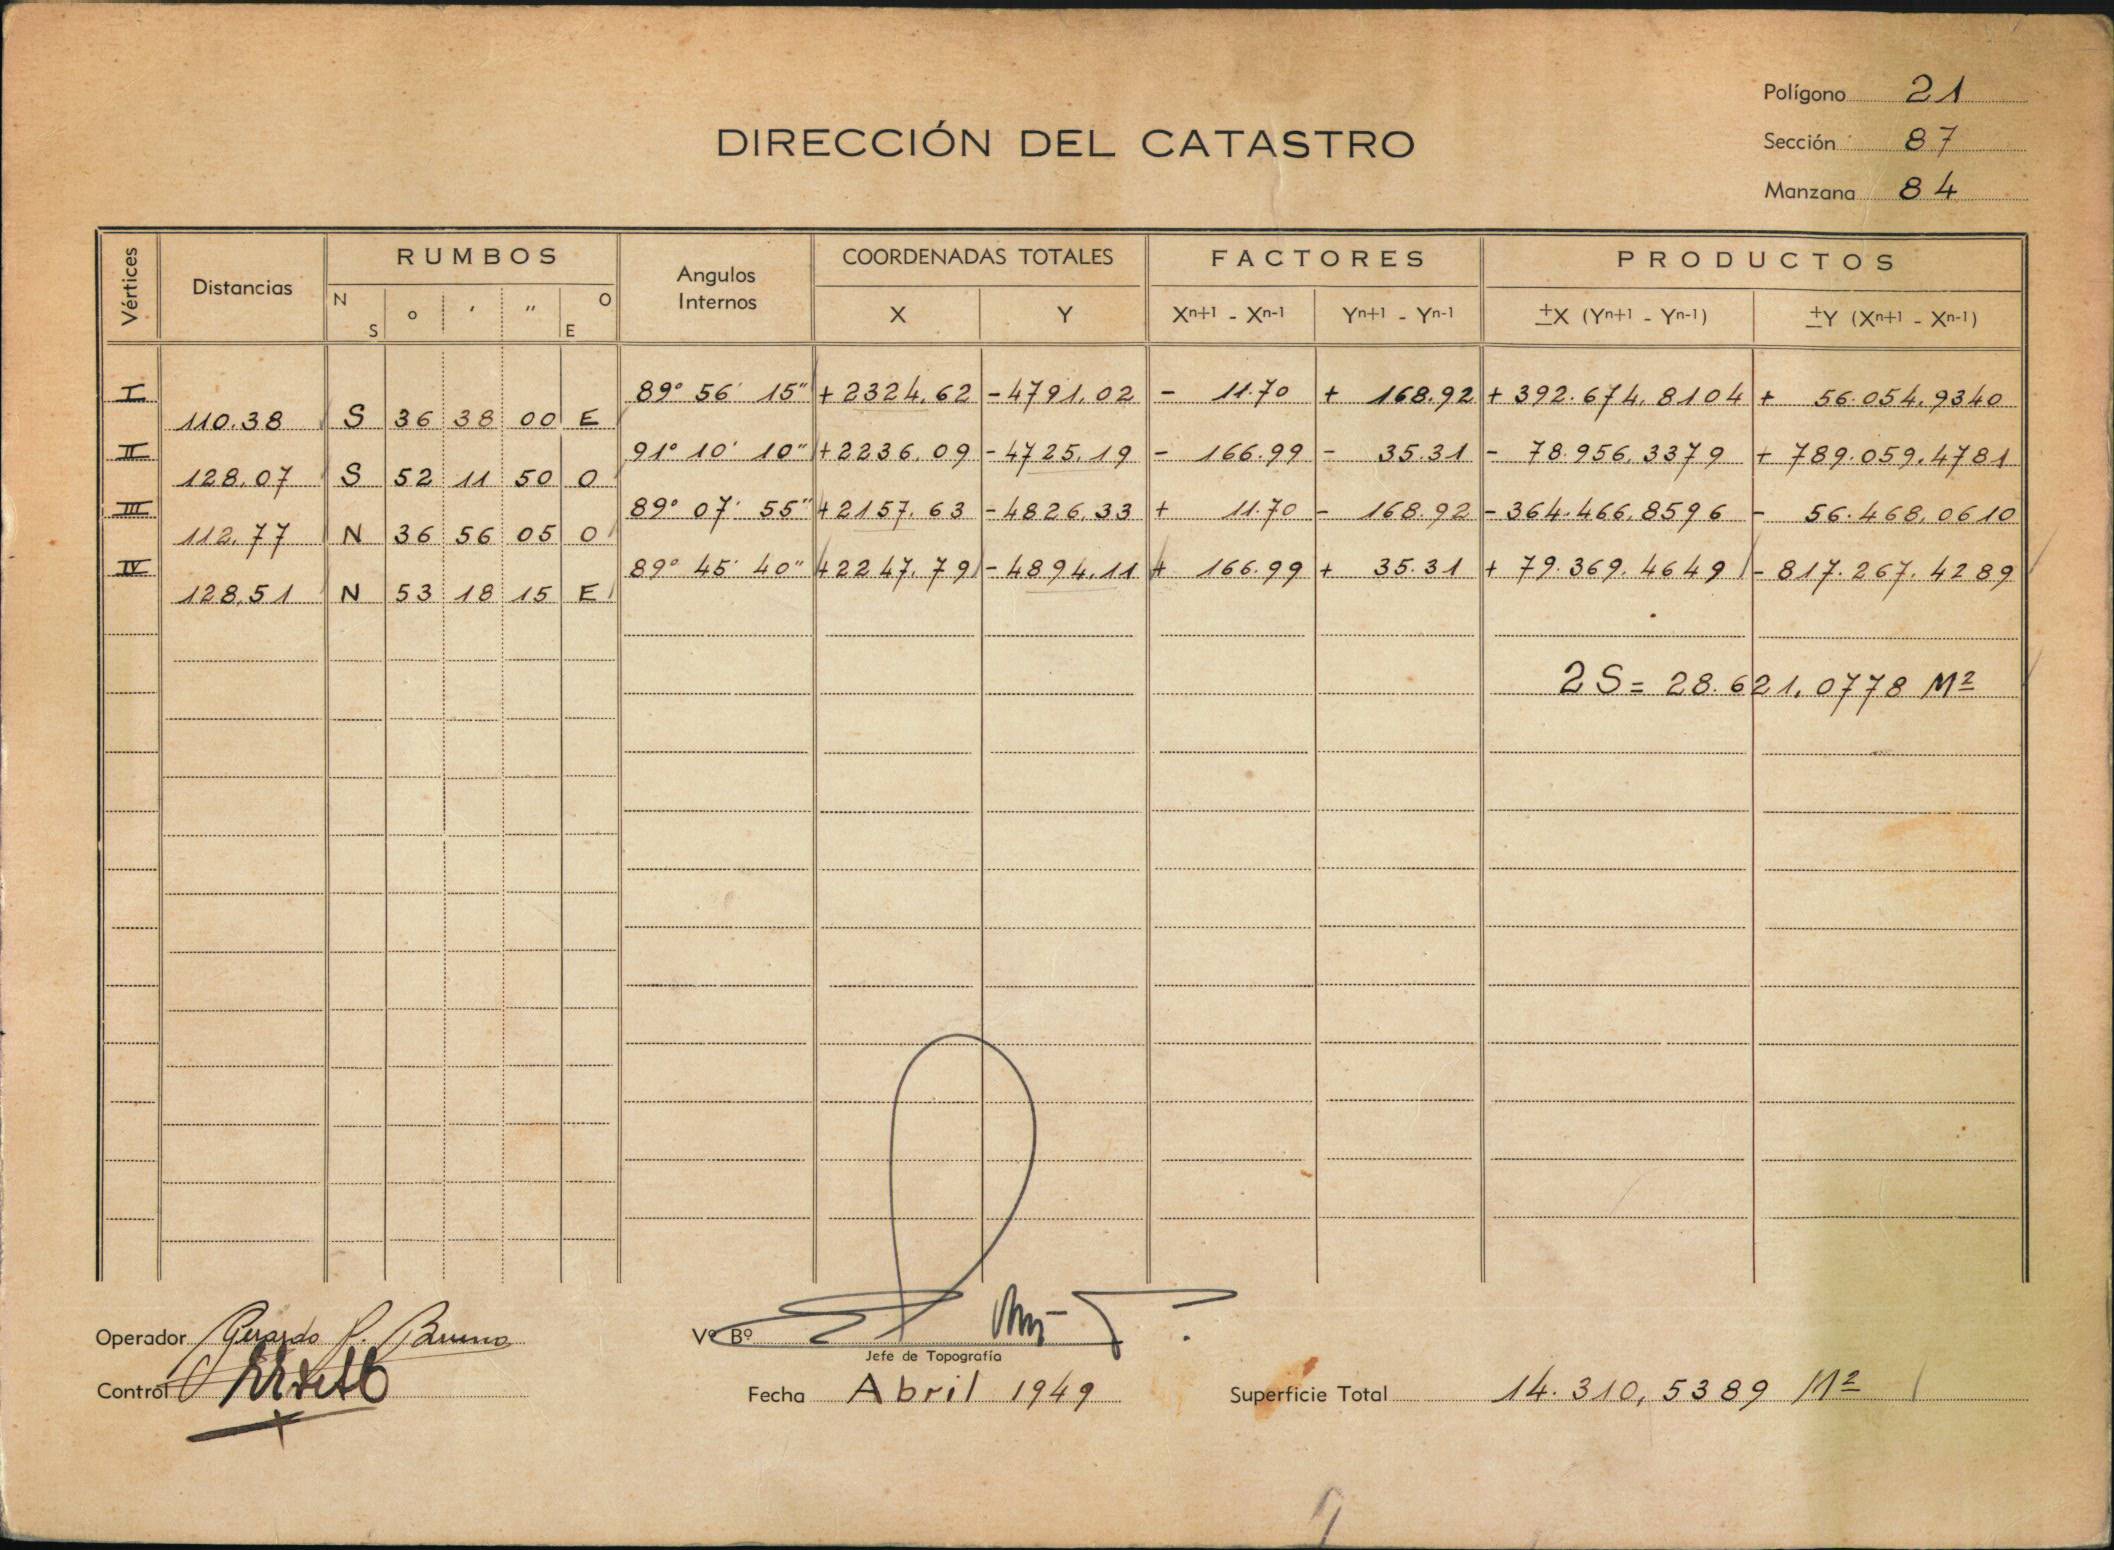 Polígono 21
DIRECCIÓN DEL CATASTRO
Sección 87
Manzana 84
Vértices Distancias RUMBOS Angulos Internos COORDENADAS TOTALES FACTORES PRODUCTOS
N S o ' " O E X Y Xn+1 - Xn-1 Yn+1 - Yn-1 ±X (Yn+1 - Yn-1) ±Y (Xn+1 - Xn-1)
I 89° 56' 15" +2324,62 -4791,02 - 11.70 + 168.92 + 392.674,8104 + 56.054,9340
110.38 S 36 38 00 E
II 91° 10' 10" +2236,09 -4725,19 - 166.99 - 35.31 - 78.956,3379 + 789.059,4781
128,07 S 52 11 50 O
III 89° 07' 55" +2157,63 -4826,33 + 11.70 - 168.92 -364.466,8596 - 56.468,0610
112,77 N 36 56 05 O
IV 89° 45' 40" +2247,79 -4894,11 + 166.99 + 35.31 + 79.369,4649 - 817.267,4289
128,51 N 53 18 15 E
2S = 28.621,0778 M2
Operador Gerardo P. Bruno Vº Bº
Jefe de Topografía
Control Fecha Abril 1949 Superficie Total 14.310,5389 M2